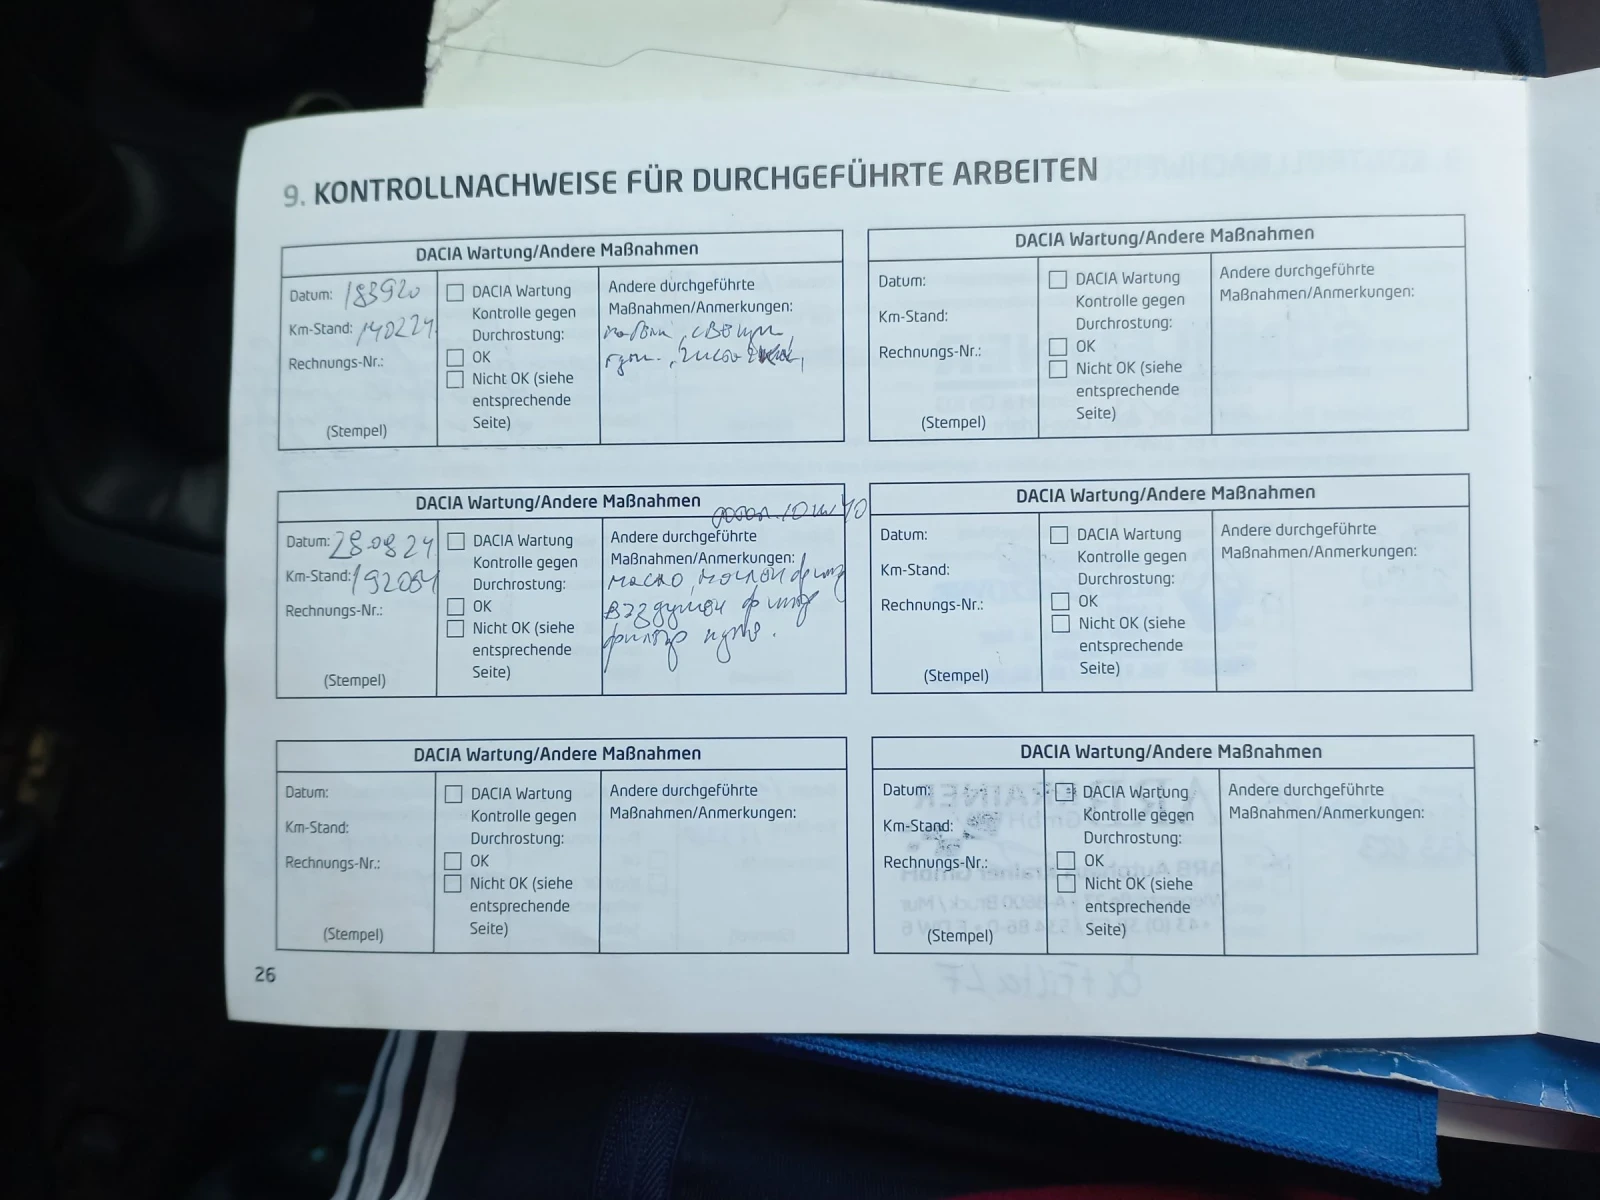 9. KONTROLLNACHWEISE FÜR DURCHGEFÜHRTE ARBEITEN
DACIA Wartung/Andere Maßnahmen
Datum: 183920
Km-Stand: 140224
Rechnungs-Nr.:
(Stempel)
DACIA Wartung
Kontrolle gegen
Durchrostung:
OK
Nicht OK (siehe
entsprechende
Seite)
Andere durchgeführte
Maßnahmen/Anmerkungen:
DACIA Wartung/Andere Maßnahmen
Datum:
Km-Stand:
Rechnungs-Nr.:
(Stempel)
DACIA Wartung
Kontrolle gegen
Durchrostung:
OK
Nicht OK (siehe
entsprechende
Seite)
Andere durchgeführte
Maßnahmen/Anmerkungen:
DACIA Wartung/Andere Maßnahmen
Datum: 28.08.24
Km-Stand: 192054
Rechnungs-Nr.:
(Stempel)
DACIA Wartung
Kontrolle gegen
Durchrostung:
OK
Nicht OK (siehe
entsprechende
Seite)
10 W 40
Andere durchgeführte
Maßnahmen/Anmerkungen:
масло
фильтр
DACIA Wartung/Andere Maßnahmen
Datum:
Km-Stand:
Rechnungs-Nr.:
(Stempel)
DACIA Wartung
Kontrolle gegen
Durchrostung:
OK
Nicht OK (siehe
entsprechende
Seite)
Andere durchgeführte
Maßnahmen/Anmerkungen:
DACIA Wartung/Andere Maßnahmen
Datum:
Km-Stand:
Rechnungs-Nr.:
(Stempel)
DACIA Wartung
Kontrolle gegen
Durchrostung:
OK
Nicht OK (siehe
entsprechende
Seite)
Andere durchgeführte
Maßnahmen/Anmerkungen:
DACIA Wartung/Andere Maßnahmen
Datum:
Km-Stand:
Rechnungs-Nr.:
(Stempel)
DACIA Wartung
Kontrolle gegen
Durchrostung:
OK
Nicht OK (siehe
entsprechende
Seite)
Andere durchgeführte
Maßnahmen/Anmerkungen:
26